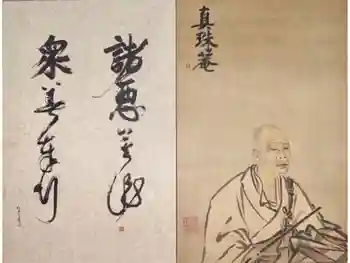 諸惡莫作
衆善奉行
真珠菴